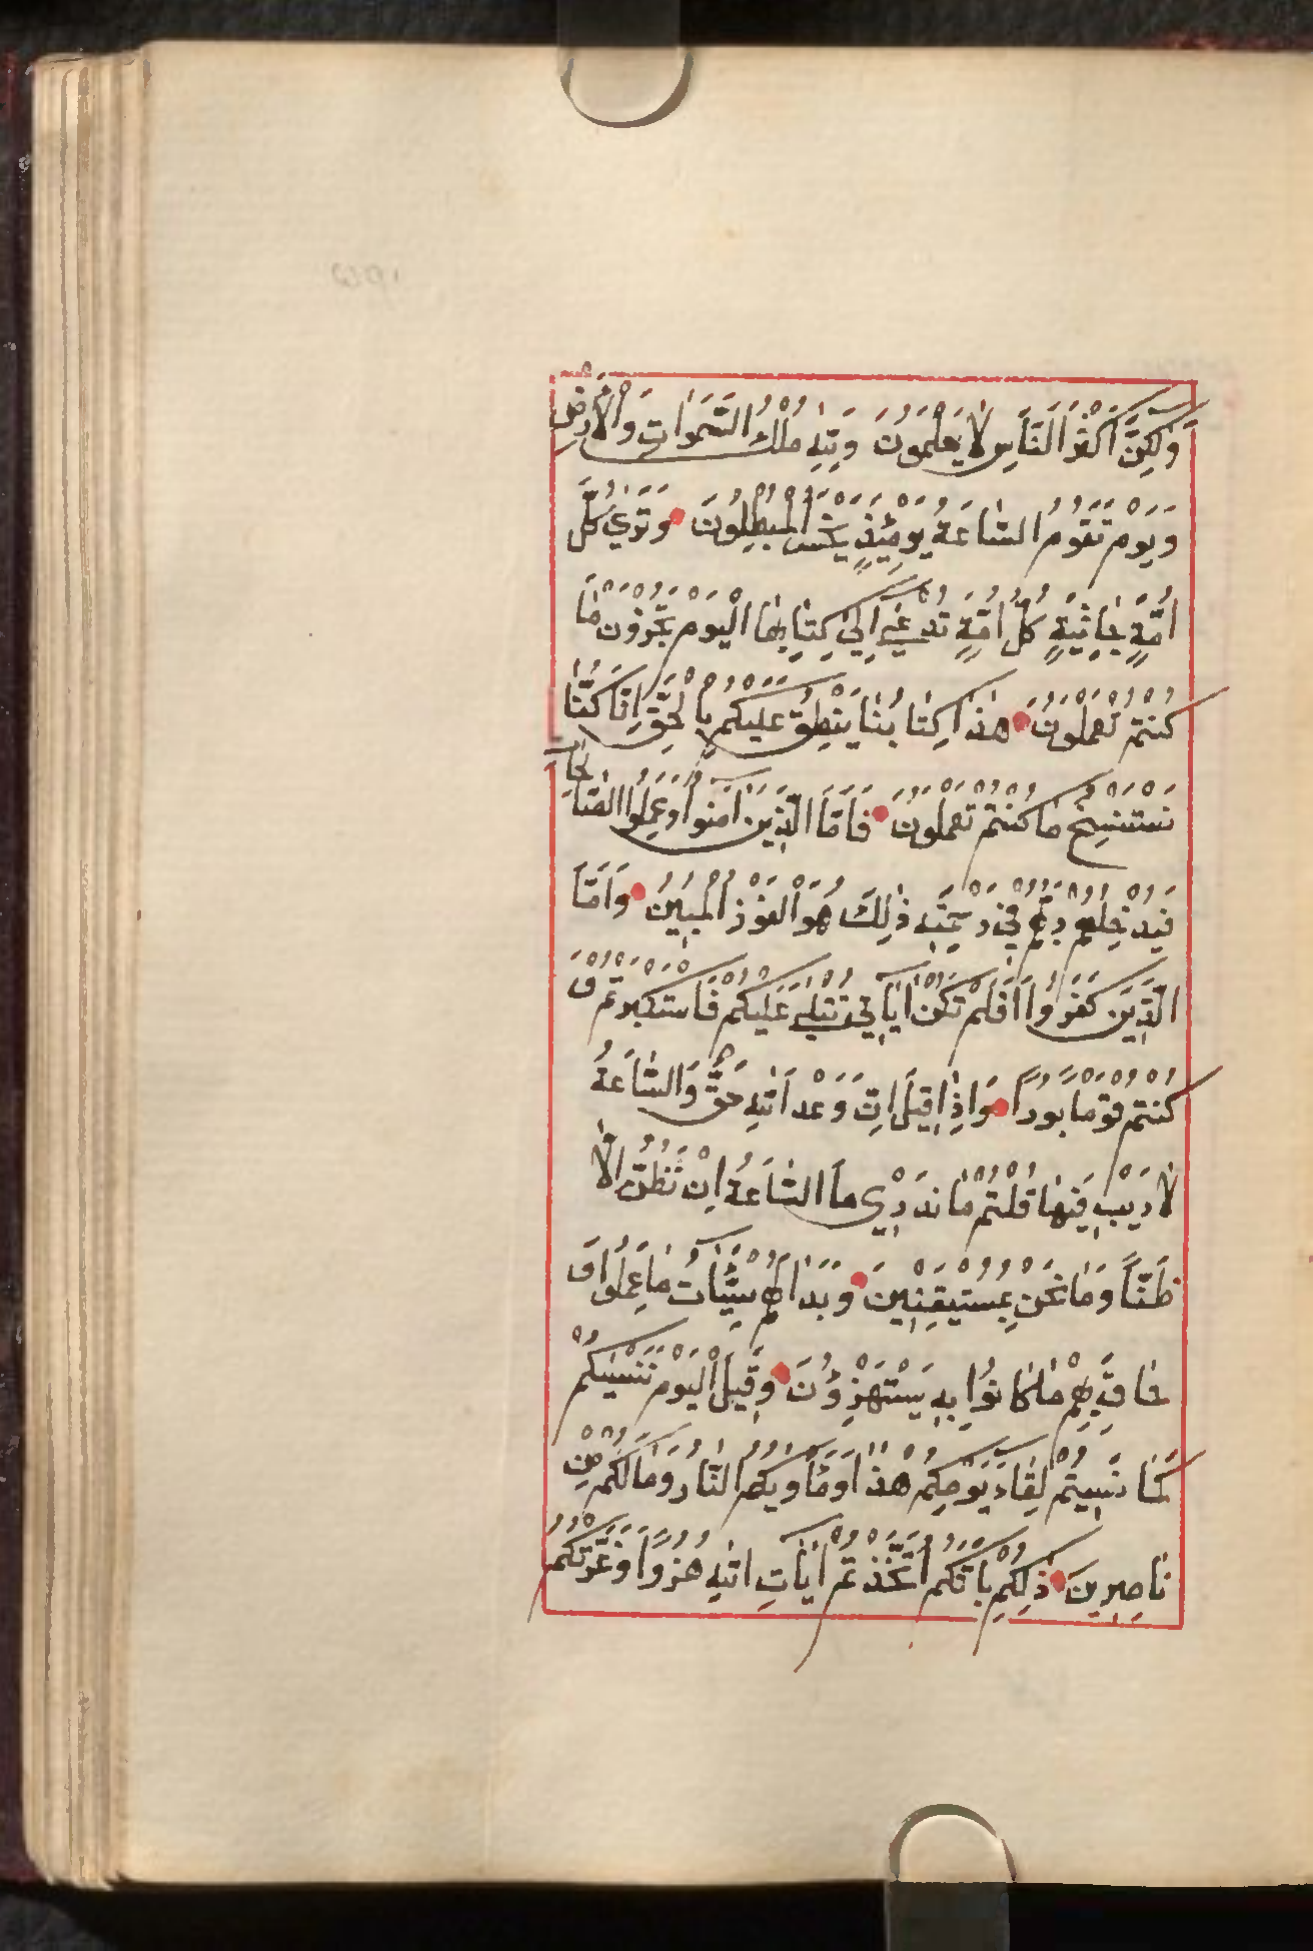 وَلَكِنَّ اَكْثَرَ النَّاسِ لَا يَعْلَمُونَ وَلِلّٰهِ مُلْكُ السَّمَوَاتِ وَالْاَرْضِ
وَيَوْمَ تَقُومُ السَّاعَةُ يَوْمَئِذٍ يَخْسَرُ الْمُبْطِلُونَ وَتَرٰي كُلَّ
اُمَّةٍ جَاثِيَةٍ كُلُّ اُمَّةٍ تُدْعٰي اِلٰي كِتَابِهَا الْيَوْمَ تُجْزَوْنَ مَا
كُنْتُمْ تَعْمَلُونَ هٰذَا كِتَابُنَا يَنْطِقُ عَلَيْكُمْ بِالْحَقِّ اِنَّا كُنَّا
نَسْتَنْسِخُ مَا كُنْتُمْ تَعْمَلُونَ فَاَمَّا الَّذِينَ اٰمَنُوا وَعَمِلُوا الصَّالِحَاتِ
فَيُدْخِلُهُمْ رَبُّهُمْ فِي رَحْمَتِهِ ذٰلِكَ هُوَ الْفَوْزُ الْمُبِينُ وَاَمَّا
الَّذِينَ كَفَرُوا اَفَلَمْ تَكُنْ اٰيَاتِي تُتْلٰي عَلَيْكُمْ فَاسْتَكْبَرْتُمْ وَ
كُنْتُمْ قَوْمًا بُورًا وَاِذَا قِيلَ اِنَّ وَعْدَ اللّٰهِ حَقٌّ وَالسَّاعَةُ
لَا رَيْبَ فِيهَا قُلْتُمْ مَا نَدْرِي مَا السَّاعَةُ اِنْ نَظُنُّ اِلَّا
ظَنًّا وَمَا نَحْنُ بِمُسْتَيْقِنِينَ وَبَدَا لَهُمْ سَيِّئَاتُ مَا عَمِلُوا وَ
حَاقَ بِهِمْ مَا كَانُوا بِهِ يَسْتَهْزِؤُنَ وَقِيلَ الْيَوْمَ نَنْسٰيكُمْ
كَمَا نَسِيتُمْ لِقَاءَ يَوْمِكُمْ هٰذَا وَمَأْوٰيكُمُ النَّارُ وَمَا لَكُمْ مِنْ
نَاصِرِينَ ذٰلِكُمْ بِاَنَّكُمُ اتَّخَذْتُمْ اٰيَاتِ اللّٰهِ هُزُوًا وَغَرَّتْكُمُ